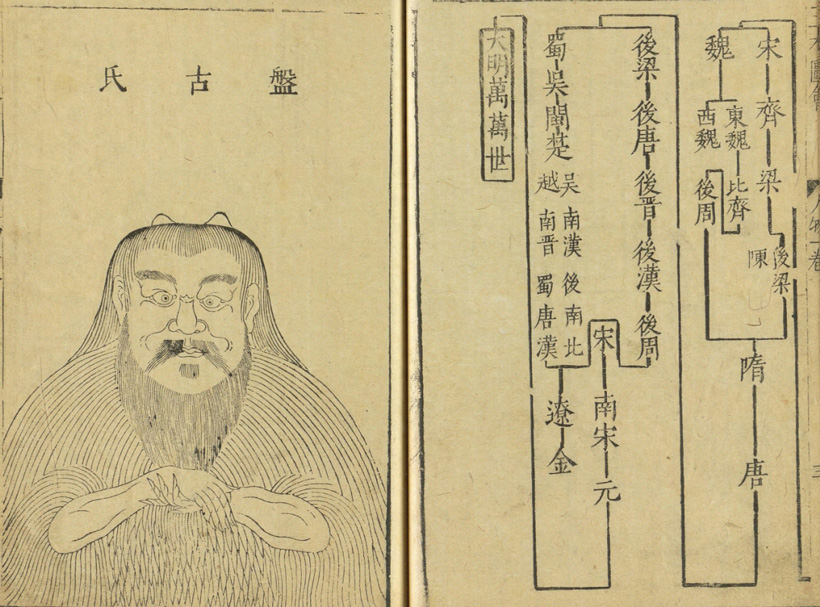 圖會 人物一卷
宋 齊 梁 後梁
陳
魏
東魏 比齊
西魏 後周
隋 唐
後梁 後唐 後晉 後漢 後周
宋 南宋 元
蜀 吳 閩 楚
吳 南漢 後 南 比
越 南晉 蜀 唐 漢
遼 金
大明萬萬世
盤古氏